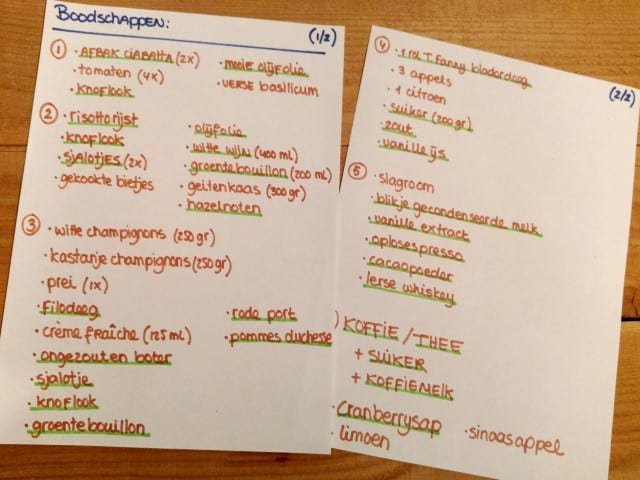 Boodschappen:
(1/2)
① · AFBAK CIABATTA (2x)
· tomaten (4x)
· knoflook
· mooie olijfolie
· verse basilicum
② · risottorijst
· knoflook
· sjalotjes (2x)
· gekookte bietjes
· olijfolie
· witte wijn (400 ml)
· groentebouillon (200 ml)
· geitenkaas (300 gr)
· hazelnoten
③ · witte champignons (250 gr)
· kastanje champignons (250 gr)
· prei (1x)
· Filodeeg
· crème fraîche (125 ml)
· ongezouten boter
· sjalotje
· knoflook
· groentebouillon
· rode port
· pommes duchesse
(2/2)
④ · 1 rol T.Fanny bladerdeeg
· 3 appels
· 1 citroen
· suiker (200 gr)
· zout
· vanille ijs
⑤ · slagroom
· blikje gecondenseerde melk
· vanille extract
· oplosespresso
· cacaopoeder
· Ierse whiskey
) KOFFIE / THEE
+ SUIKER
+ KOFFIEMELK
· Cranberrysap
· limoen
· sinaasappel